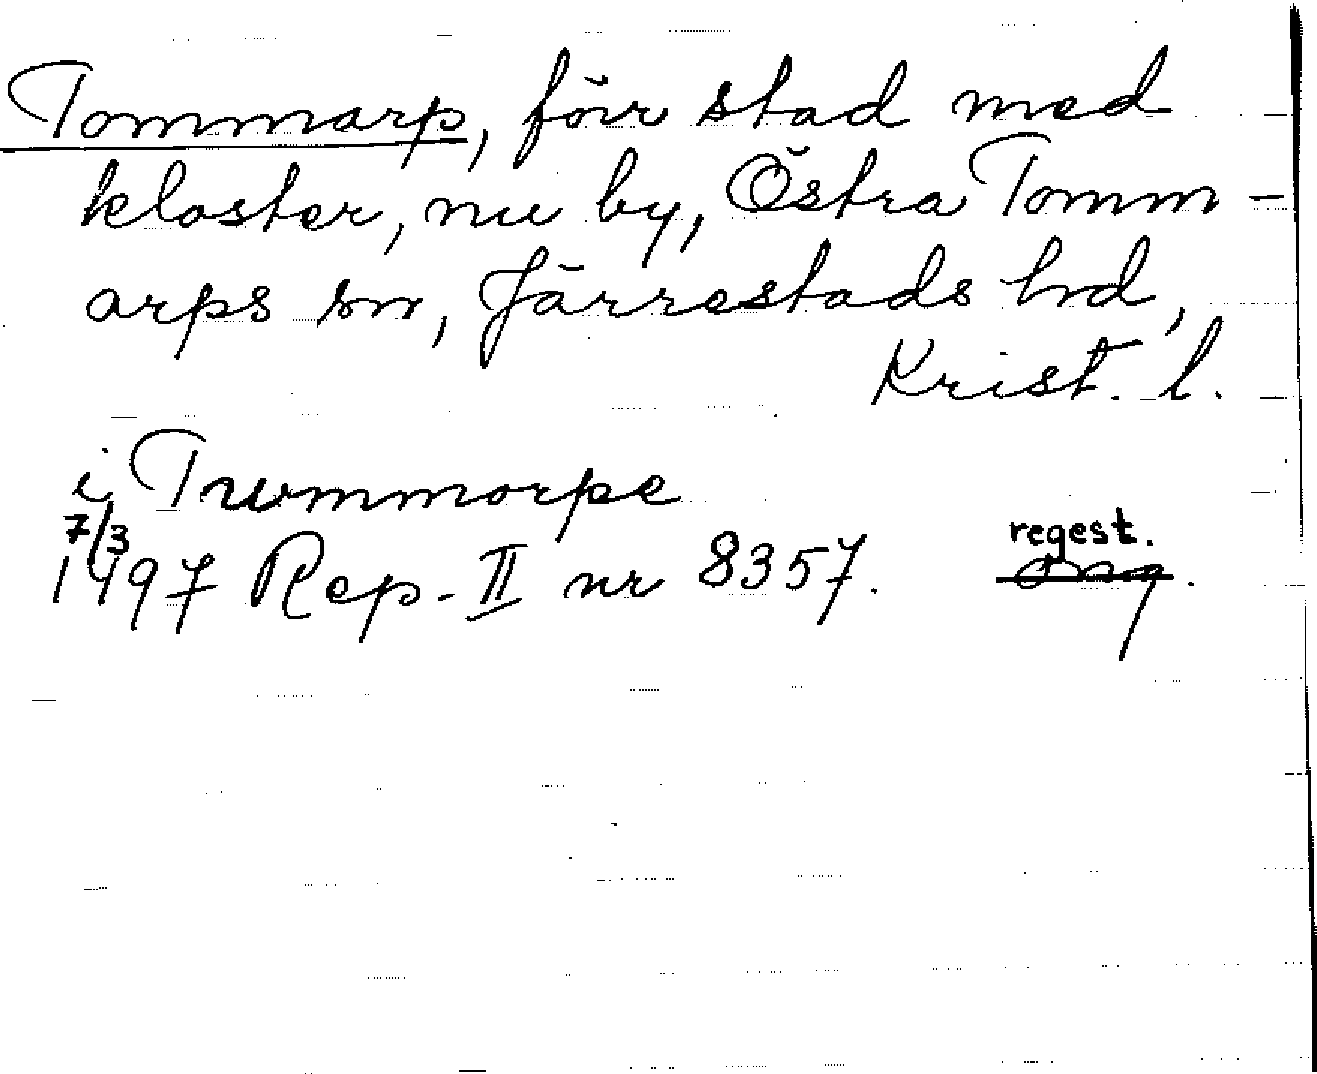 Tommarp, förr stad med
kloster, nu by, Östra Tomm-
arps sn, Järrestads hd,
Krist. l.
i Trummorpe
7/3
1497 Rep. II nr 8357.
regest.